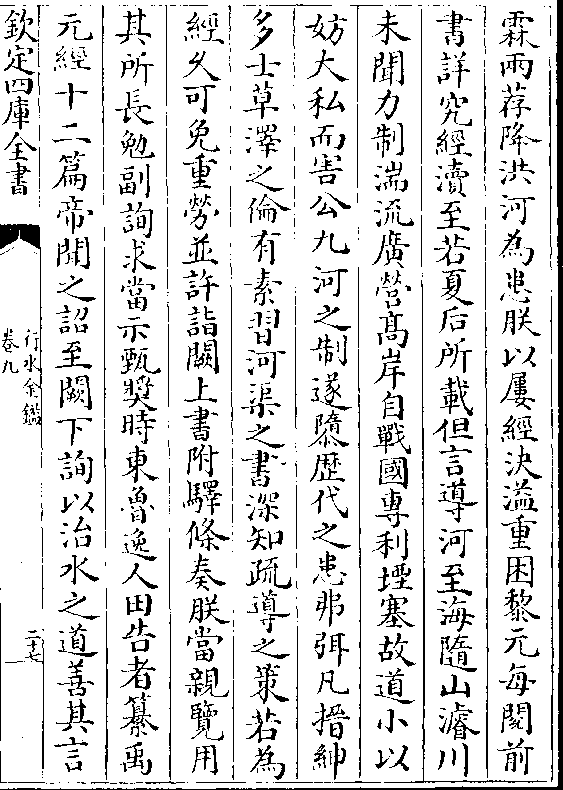 霖雨荐降洪河為患朕以屢經決溢重困黎元每閱前
書詳究經瀆至若夏后所載但言導河至海隨山濬川
未聞力制湍流廣營高岸自戰國專利堙塞故道小以
妨大私而害公九河之制遂隳歴代之患弗弭凡搢紳
多士草澤之倫有素習河渠之書深知疏導之策若為
經久可免重勞並許詣闕上書附驛條奏朕當親覽用
其所長勉副詢求當示甄奬時東魯逸人田告者纂禹
元經十二篇帝聞之詔至闕下詢以治水之道善其言
欽定四庫全書
行水金鑑
卷九
二十七